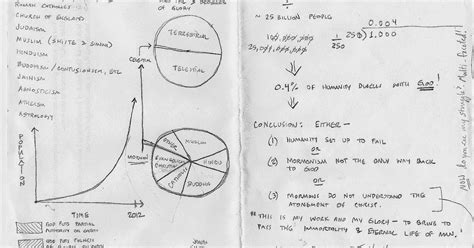 ROMAN CATHOLICS
CHURCH OF ENGLAND
JUDAISM
MUSLIM (SHIITE & SUNNI)
HINDUISM
BUDDHISM / CONFUSIONISM, ETC
JAINISM
AGNOSTICISM
ATHEISM
ASTROLOGY
OF GLORY
TERRESTRIAL
TELESTIAL
CELESTIAL
POPULATION
TIME
2012
MORMON
OTHER
MUSLIM
HINDU
BUDDHA
CATHOLICS
GOD PUTS PARTIAL
AUTHORITY ON EARTH
~ 25 BILLION PEOPLE
0.004
1
250
250 1.000
0.4% OF HUMANITY DWELLS WITH GOD!
CONCLUSION: EITHER -
(1) HUMANITY SET UP TO FAIL
OR
(2) MORMONISM NOT THE ONLY WAY BACK
TO GOD
OR
(3) MORMONS DO NOT UNDERSTAND THE
ATONEMENT OF CHRIST.
"THIS IS MY WORK AND MY GLORY - TO BRING TO
PASS THE IMMORTALITY & ETERNAL LIFE OF MAN."
Now do you see my struggle? Multi-faceted!